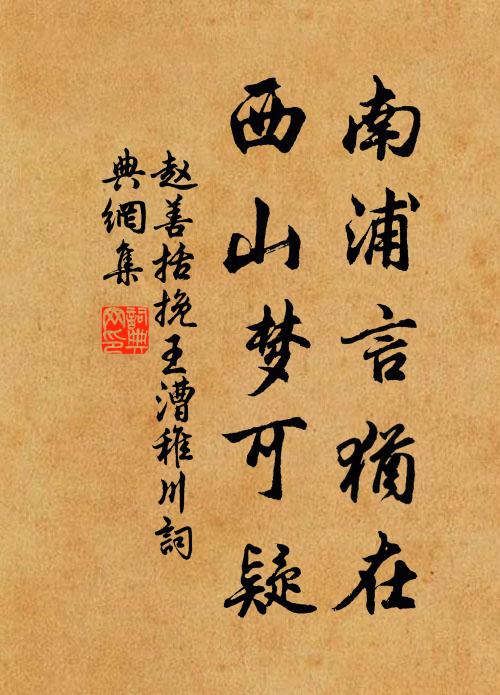 南浦言犹在
西山梦可疑
赵善括挽王漕稚川詞
典網集
詞典
网印